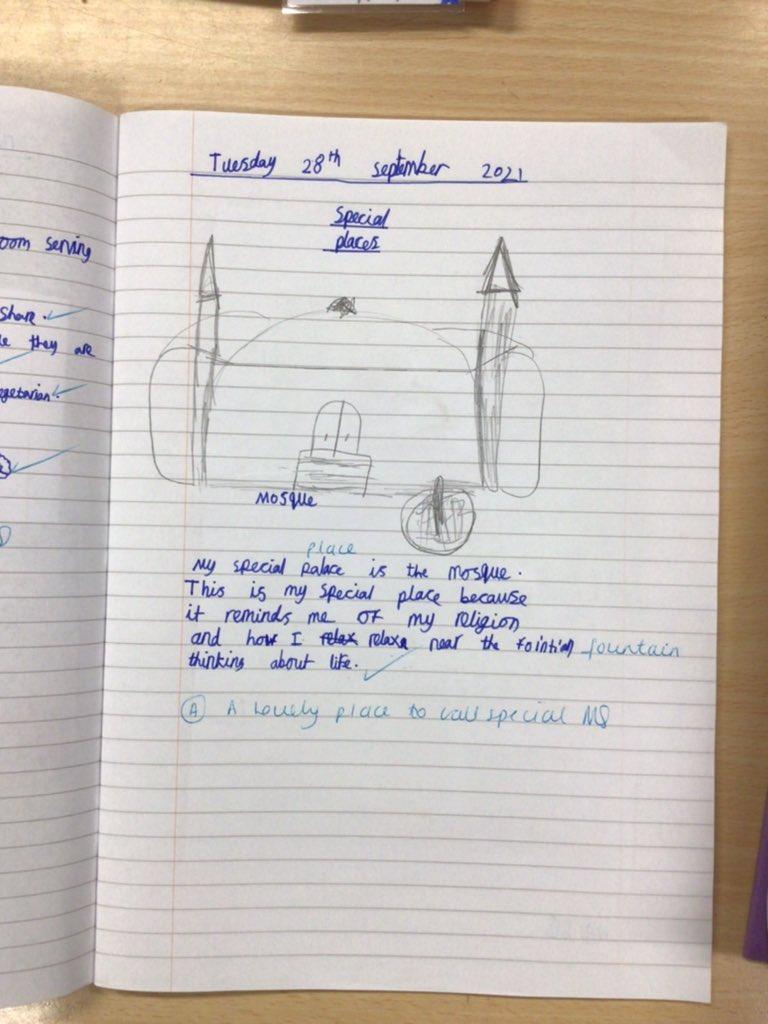 oom serving
share.
they are
egetarian.
Tuesday 28th september 2021
Special
places
Mosque
place
My special palace is the Mosque.
This is my special place because
it reminds me of my religion
and how I relax relax near the fointion fountain
thinking about life.
A A lovely place to call special MS